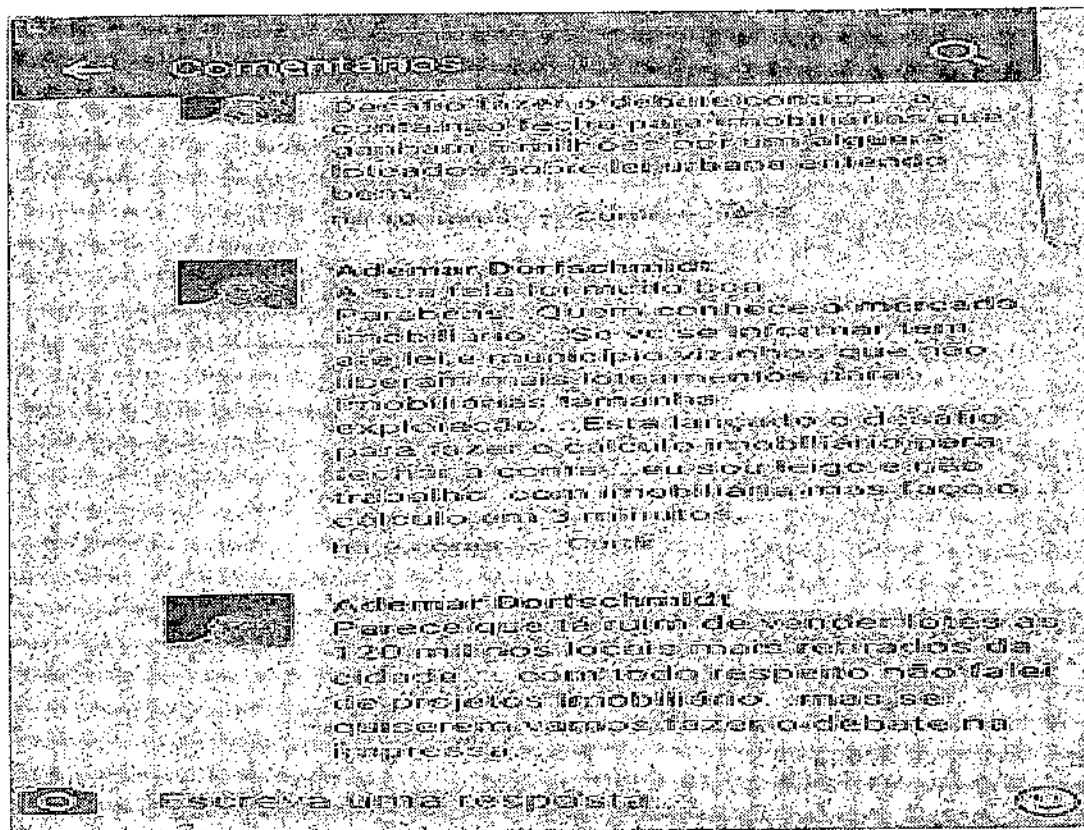 Comentários
Desafio fazer o debate comigo... a
conta não fecha para imobiliárias que
ganham 5 milhões por um alquere
loteados sobre lei urbana entendo
bem.
Curtir
Ademar Dortschmidt
A sua fala foi muito boa
Parabéns. Quem conhece o mercado
imobiliário. So vc se informar tem
até lei e município vizinhos que não
liberam mais loteamentos para
imobiliárias tamanha
exploração... Esta lançado o desafio
para fazer o cálculo imobiliário para
fechar a conta... eu sou leigo e não
trabalho com imobiliária mas faço o
cálculo em 3 minutos.
Curtir
Ademar Dortschmidt
Parece que tá ruim de vender lotes as
120 mil nos locais mais retirados da
cidade... com todo respeito não falei
de projetos imobiliário... mas se
quiserem vamos fazer o debate na
impressa.
Escreva uma resposta...